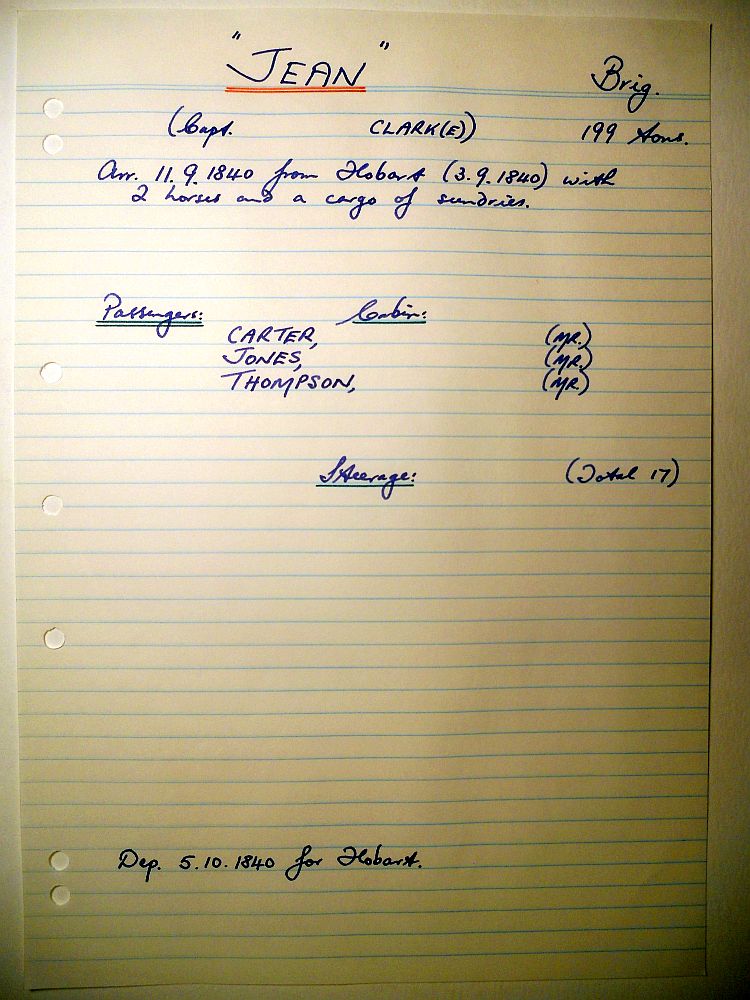 "JEAN" Brig.
(Capt. CLARK(E)) 199 tons.
Arr. 11.9.1840 from Hobart (3.9.1840) with
2 horses and a cargo of sundries.
Passengers: Cabin:
CARTER, (MR.)
JONES, (MR.)
THOMPSON, (MR.)
Steerage: (Total 17)
Dep. 5.10.1840 for Hobart.